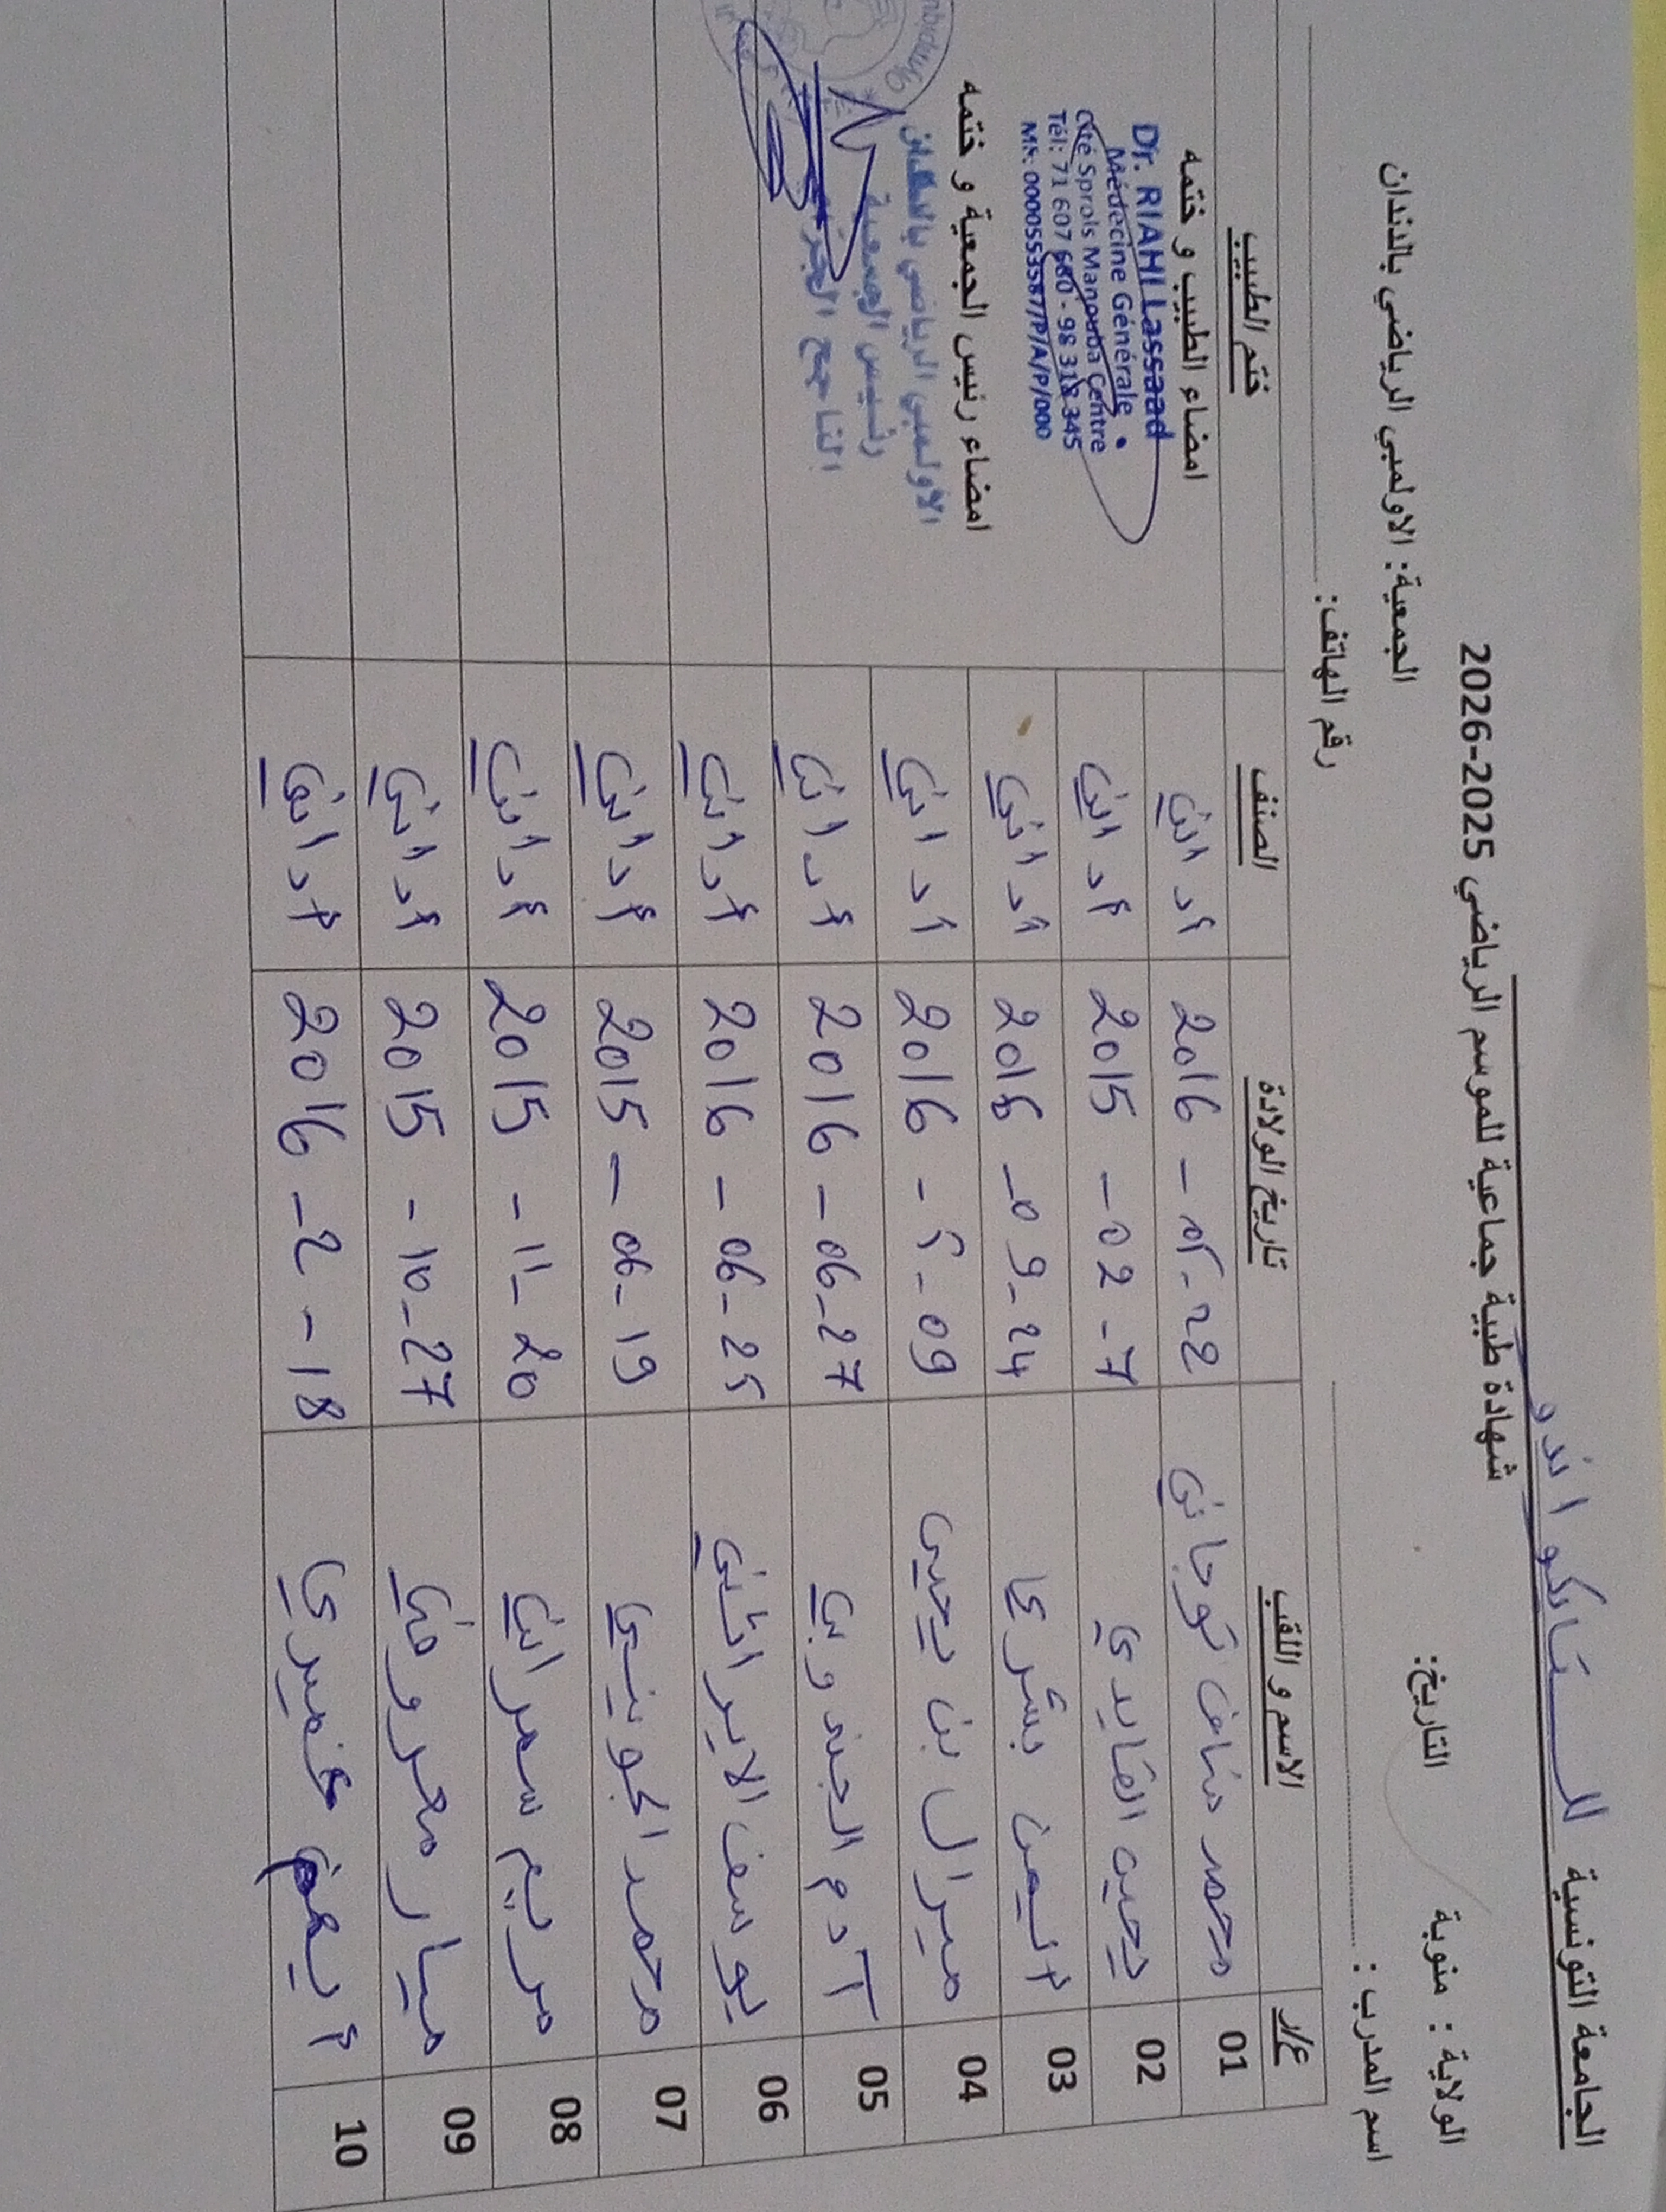 الجامعة التونسية للتايكواندو
شهادة طبية جماعية للموسم الرياضي 2025-2026
الولاية : منوبة التاريخ: الجمعية: الاولمبي الرياضي بالدندان
اسم المدرب : رقم الهاتف:
ع/ر الاسم و اللقب تاريخ الولادة الصنف ختم الطبيب
01 محمد ضياف توجاني 2016 - 05 - 22 أداني
02 يحيى القايدي 2015 - 02 - 7 أداني
03 اليمن بشرى 2016 - 09 - 24 أداني
04 ميرال بن يحيى 2016 - 5 - 09 أداني
05 آدم الجندوبي 2016 - 06 - 27 أداني
06 يوسف الايراني 2016 - 06 - 25 أداني
07 محمد الجويني 2015 - 06 - 19 أداني
08 مريم سمراني 2015 - 11 - 20 أداني
09 ميار محروقي 2015 - 10 - 27 أداني
10 أيهم خميري 2016 - 2 - 18 أداني
امضاء الطبيب و ختمه
Dr. RIAHI Lassaad
Médecine Générale
Cité Sprols Manouba Centre
Tél: 71 607 680 - 98 318 345
MF: 000055358T/P/A/P/000
امضاء رئيس الجمعية و ختمه
الأولمبي الرياضي بالدندان
رئيس الجمعية
الناجح